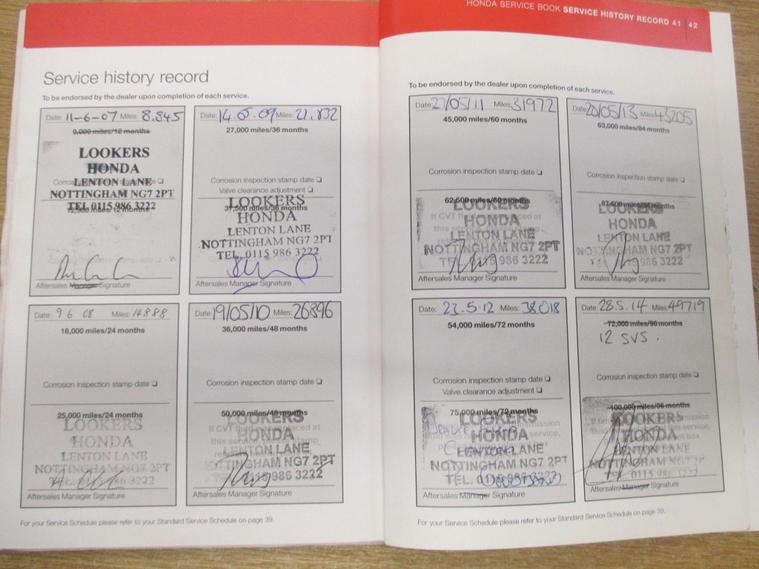 HONDA SERVICE BOOK SERVICE HISTORY RECORD 41 | 42
Service history record
To be endorsed by the dealer upon completion of each service.
Date: 11-6-07 Miles: 8.845
9,000 miles/12 months
LOOKERS
HONDA
LENTON LANE
NOTTINGHAM NG7 2PT
TEL. 0115 986 3222
Aftersales Manager Signature
Date: 14.05.09 Miles: 21,832
27,000 miles/36 months
Corrosion inspection stamp date
Valve clearance adjustment
LOOKERS
37,500 miles/36 months
HONDA
LENTON LANE
NOTTINGHAM NG7 2PT
TEL. 0115 986 3222
Aftersales Manager Signature
Date: 9 6 08 Miles: 14888
18,000 miles/24 months
Corrosion inspection stamp date
25,000 miles/24 months
LOOKERS
HONDA
LENTON LANE
NOTTINGHAM NG7 2PT
986 3222
Aftersales Manager Signature
Date: 19/05/10 Miles: 26896
36,000 miles/48 months
Corrosion inspection stamp date
50,000 miles/48 months
LOOKERS
HONDA
LENTON LANE
NOTTINGHAM NG7 2PT
986 3222
Aftersales Manager Signature
For your Service Schedule please refer to your Standard Service Schedule on page 39.
To be endorsed by the dealer upon completion of each service.
Date: 27/05/11 Miles: 31972
45,000 miles/60 months
Corrosion inspection stamp date
62,500 miles/60 months
LOOKERS
HONDA
LENTON LANE
NOTTINGHAM NG7 2PT
986 3222
Aftersales Manager Signature
Date: 20/05/13 Miles: 43205
63,000 miles/84 months
Corrosion inspection stamp date
LOOKERS
HONDA
LENTON LANE
NOTTINGHAM NG7 2PT
986 3222
Aftersales Manager Signature
Date: 23.5.12 Miles: 38018
54,000 miles/72 months
Corrosion inspection stamp date
Valve clearance adjustment
75,000 miles/72 months
LOOKERS
HONDA
LENTON LANE
NOTTINGHAM NG7 2PT
TEL.
Aftersales Manager Signature
Date: 28.5.14 Miles: 49719
72,000 miles/96 months
12 SVS.
Corrosion inspection stamp date
100,000 miles/96 months
LOOKERS
HONDA
LENTON LANE
NOTTINGHAM NG7 2PT
986 3222
Aftersales Manager Signature
For your Service Schedule please refer to your Standard Service Schedule on page 39.